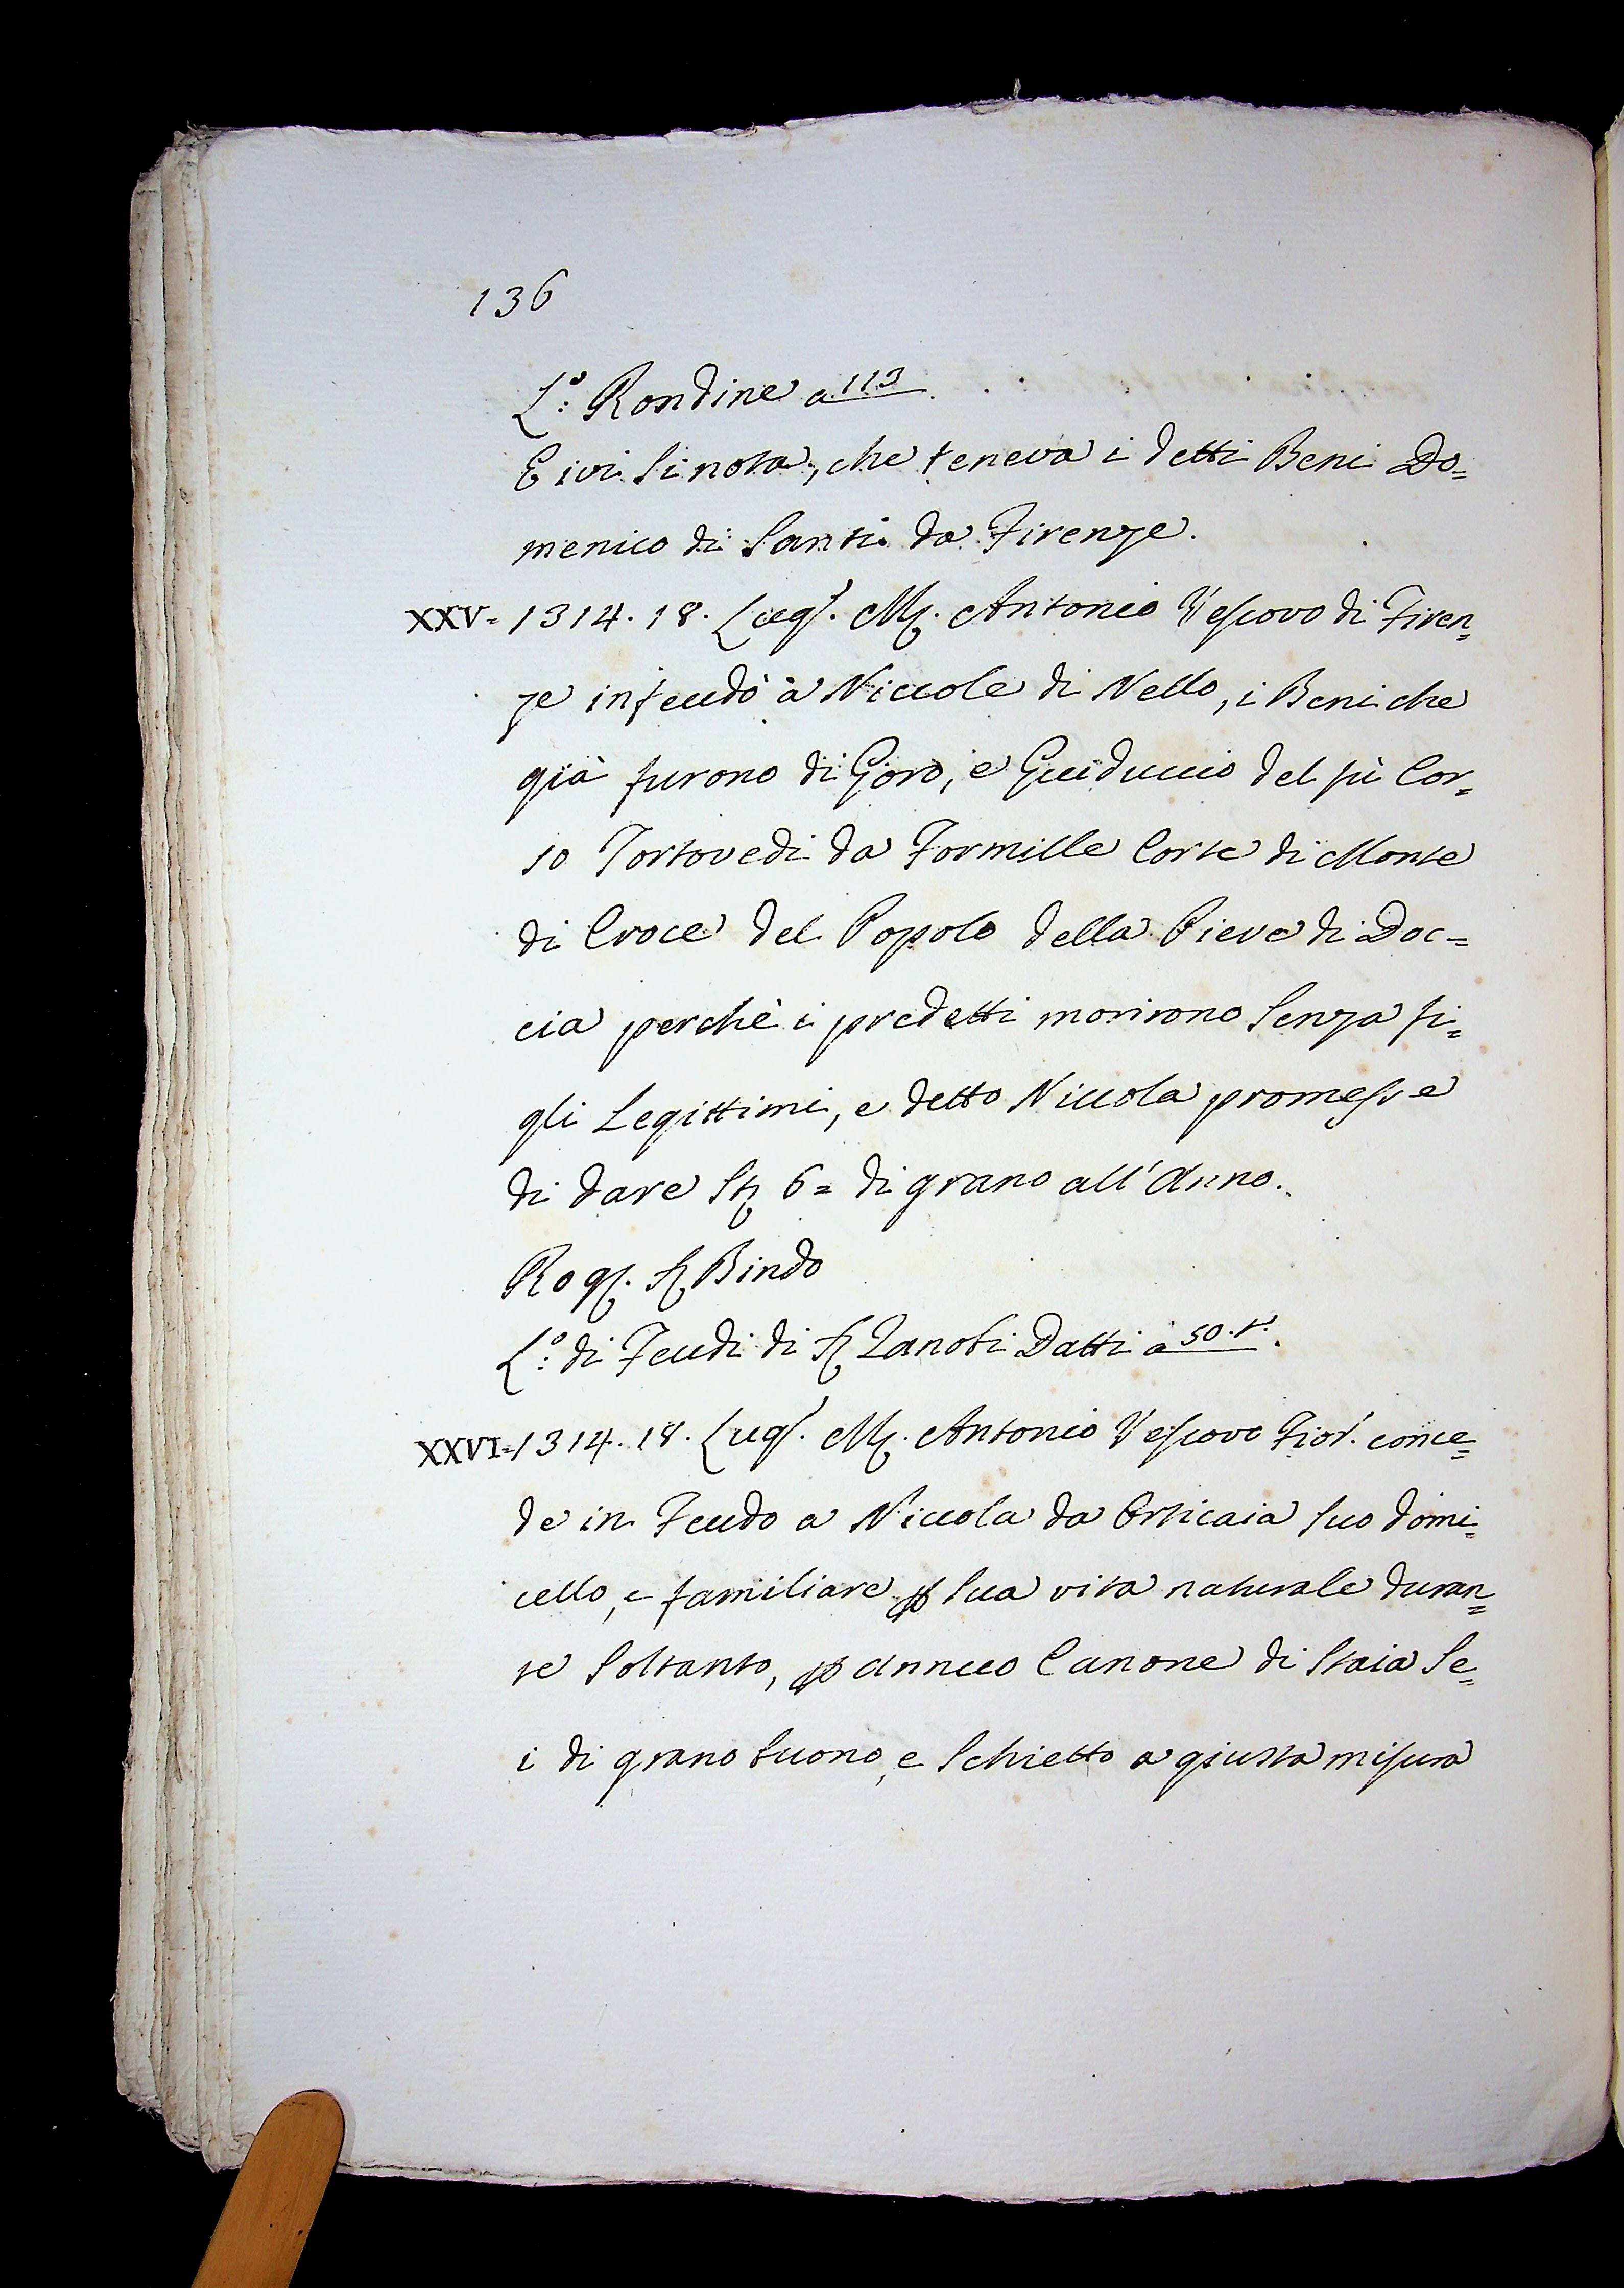 136
L.º Rondine a 113
E ivi si nota, che teneva i detti Beni Do=
menico di Santi da Firenze.
XXV= 1314. 18. Lugº. Mʳ. Antonio Vescovo di Firen=
ze infeudò a Niccole di Nello, i Beni che
già furono di Goro, e Guiduccio del fù Cor=
so Tortovedi da Formille Corte di Monte
di Croce del Popolo della Pieve di Doc=
cia perchè i predetti morirono senza fi=
gli Legittimi, e detto Niccola promesse
di dare Sta 6= di grano all'Anno.
Rogº. Sʳ Bindo
L.º di Feudi di Sʳ Zanobi Datti a 50. t.
XXVI= 1314. 18. Lugº. Mʳ. Antonio Vescovo Fior. conce=
de in Feudo a Niccola da Orticaia suo domi=
cello, e familiare p sua vita naturale duran=
te soltanto, p annuo Canone di Staia Se=
i di grano buono, e schietto a giusta misura